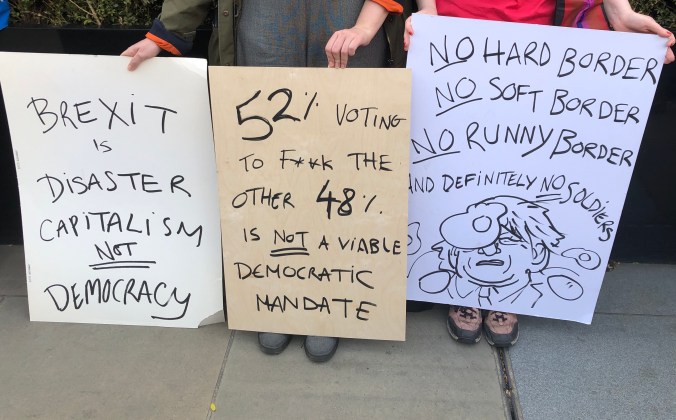 BREXIT
IS
DISASTER
CAPITALISM
NOT
DEMOCRACY
52% VOTING
TO F**K THE
OTHER 48%
IS NOT A VIABLE
DEMOCRATIC
MANDATE
NO HARD BORDER
NO SOFT BORDER
NO RUNNY BORDER
AND DEFINITELY NO SOLDIERS